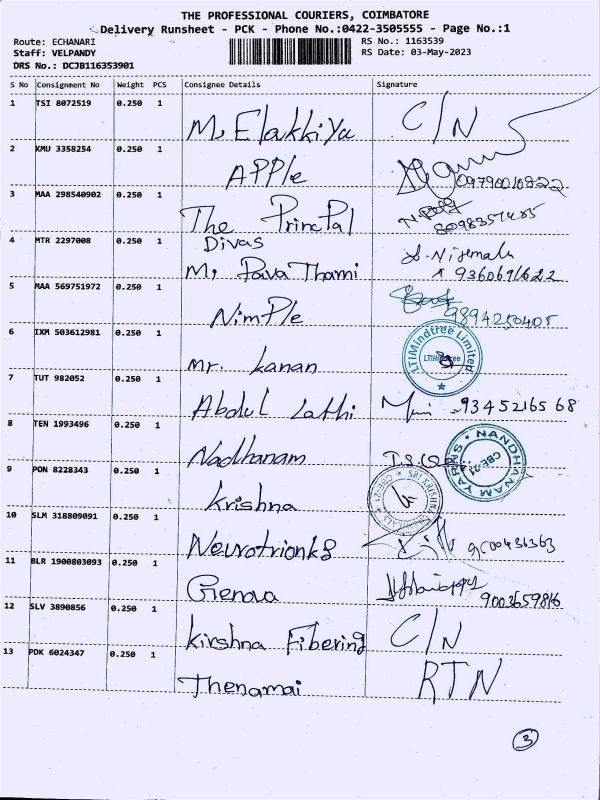 THE PROFESSIONAL COURIERS, COIMBATORE
Delivery Runsheet - PCK - Phone No.:0422-3505555 - Page No.:1
Route: ECHANARI RS No.: 1163539
Staff: VELPANDY RS Date: 03-May-2023
DRS No.: DCJB116353901
S No Consignment No Weight PCS Consignee Details Signature
1 TSI 8072519 0.250 1 M, Elakkiya C/N
2 KMU 3358254 0.250 1 APPle 09790010822
3 MAA 298540902 0.250 1 The PrincPal 8098357485
4 MTR 2297008 0.250 1 Divas
M, PavaThami 9360691622
5 MAA 569751972 0.250 1 NimPle 9894250405
6 IXM 503612981 0.250 1 Mr. Kanan LTIMindtree Limited
LTIMindtree
7 TUT 982052 0.250 1 Abdul Lathi 9345216568
8 TEN 1993496 0.250 1 Nadhanam NANDHANAM YARNS
CBE-21
9 PON 8228343 0.250 1 Krishna SRI KRISHNA
10 SLM 318809091 0.250 1 Neurotrionks 9500436363
11 BLR 1900803093 0.250 1 Genova 9003659816
12 SLV 3890856 0.250 1 Kirshna Fibering C/N
13 PDK 6024347 0.250 1 Thenamai RTN
3